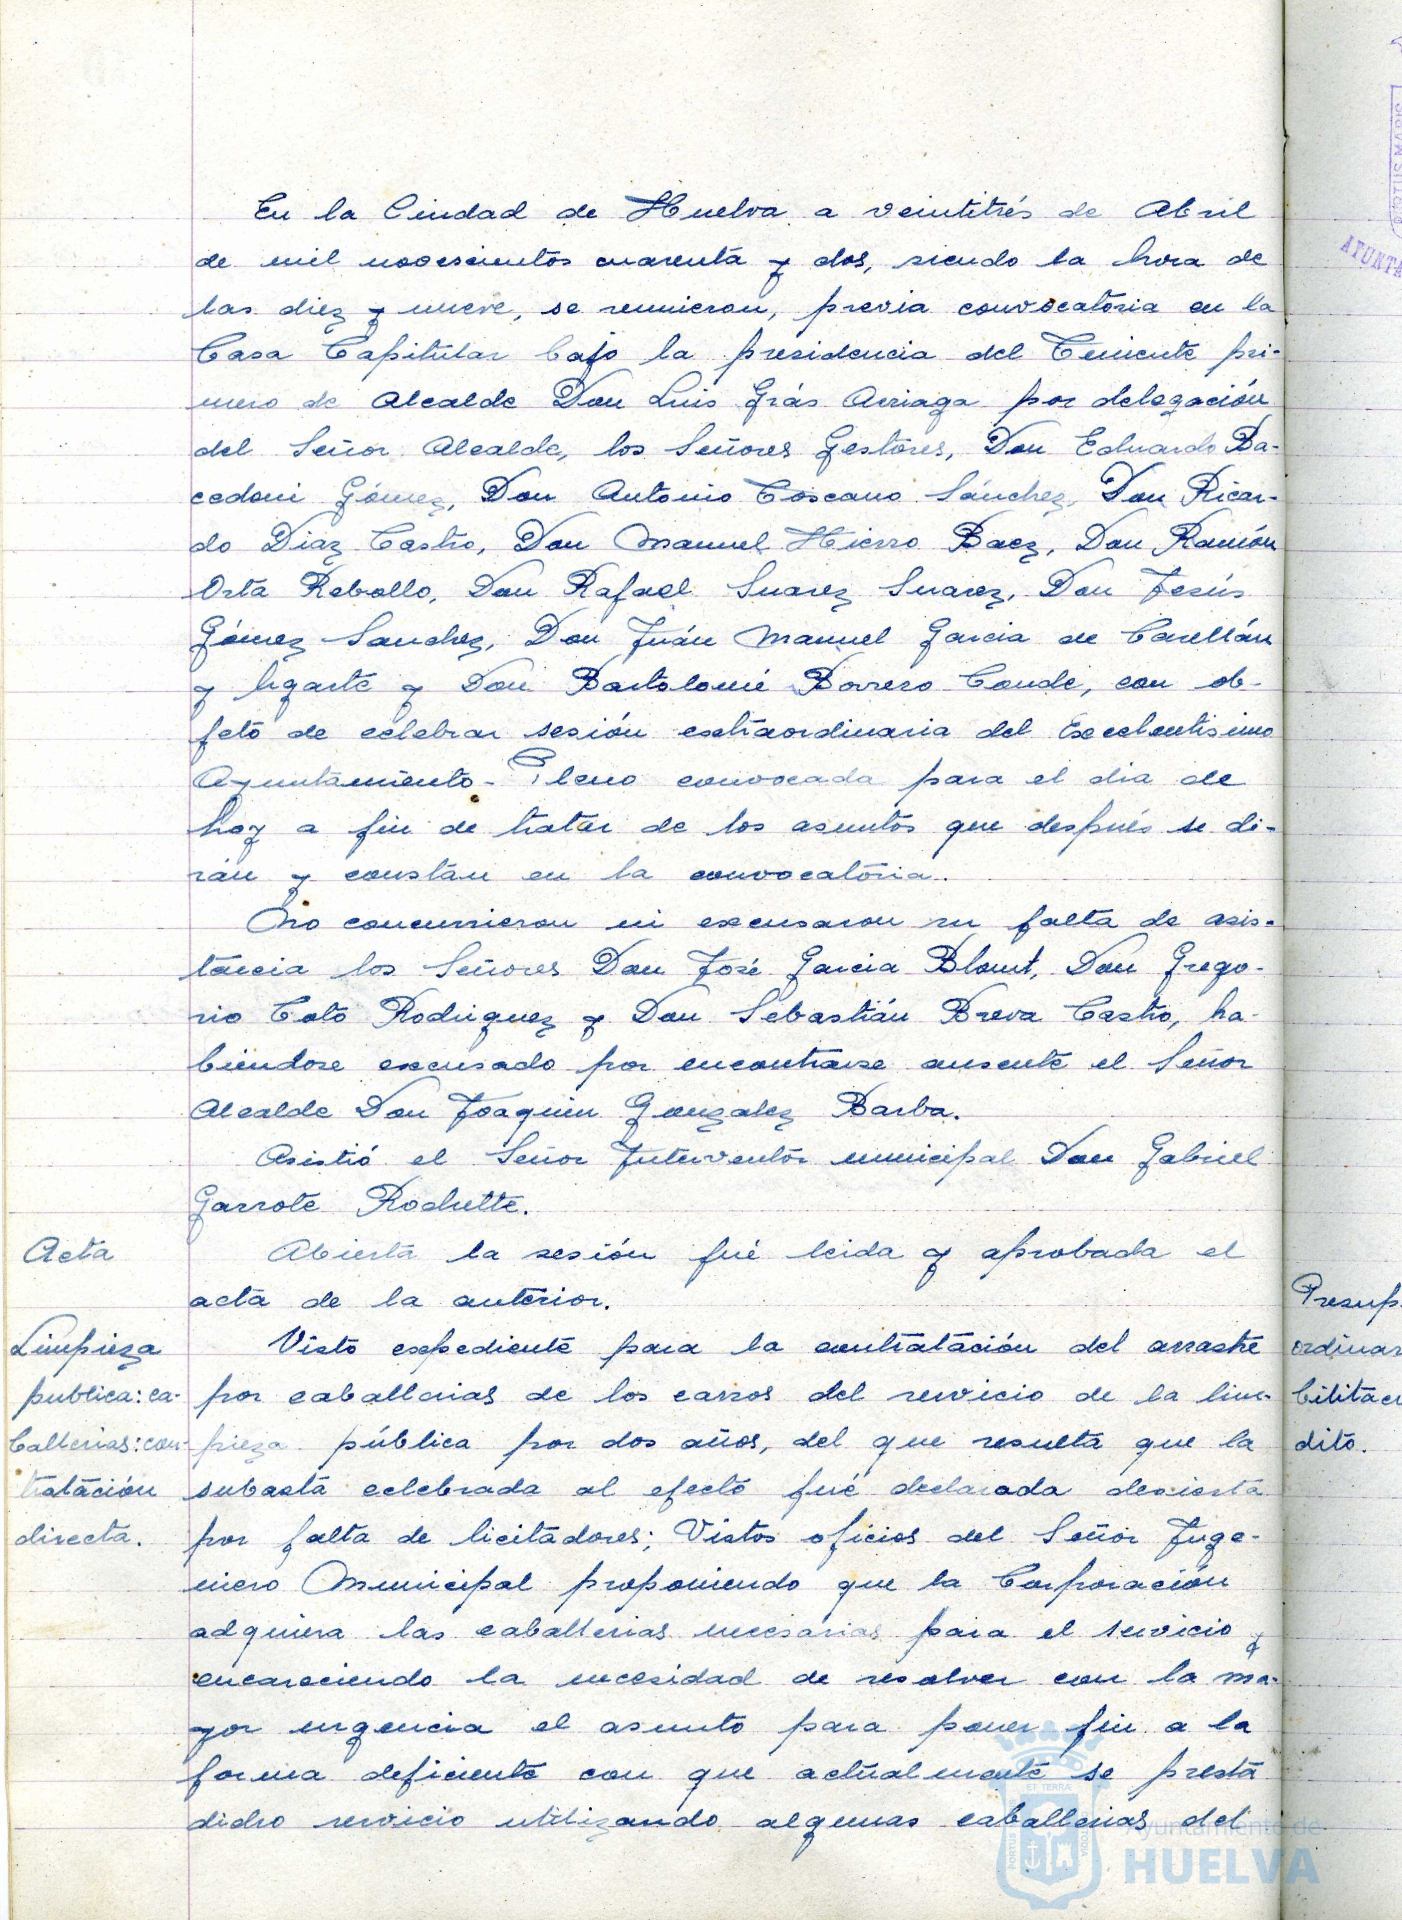 En la Ciudad de Huelva a veintitrés de Abril
de mil novecientos cuarenta y dos, siendo la hora de
las diez y nueve, se reunieron, previa convocatoria en la
Casa Capitular bajo la presidencia del Teniente pri-
mero de Alcalde Don Luis Grás Arriaga por delegación
del Señor Alcalde, los Señores Gestores, Don Eduardo Ba-
cedoni Gómez, Don Antonio Toscano Sánchez, Don Ricar-
do Diaz Castro, Don Manuel Hierro Baez, Don Ramón
Orta Rebollo, Don Rafael Suarez Suarez, Don Jesús
Gómez Sanchez, Don Juán Manuel Garcia de Carellán
y Ugarte y Don Bartolomé Borrero Conde, con ob-
jeto de celebrar sesión extraordinaria del Excelentisimo
Ayuntamiento-Pleno convocada para el dia de
hoy a fin de tratar de los asuntos que después se di-
rán y constan en la convocatoria.
No concurrieron ni excusaron su falta de asis-
tencia los Señores Don José Garcia Blount, Don Grego-
rio Coto Rodriguez y Don Sebastián Breva Castro, ha-
biendose excusado por encontrarse ausente el Señor
Alcalde Don Joaquin Gonzalez Barba.
Asistió el Señor Interventor municipal Don Gabriel
Garrote Rochette.
Acta
Abierta la sesión fué leida y aprobada el
acta de la anterior.
Limpieza
publica: ca-
ballerias: con-
tratación
directa.
Visto expediente para la contratación del arrastre
por caballerias de los carros del servicio de la lim-
pieza pública por dos años, del que resulta que la
subasta celebrada al efecto fué declarada desierta
por falta de licitadores; Vistos oficios del Señor Inge-
niero Municipal proponiendo que la Corporación
adquiera las caballerias necesarias para el servicio y
encareciendo la necesidad de resolver con la ma-
yor urgencia el asunto para poner fin a la
forma deficiente con que actualmente se presta
dicho servicio utilizando algunas caballerias del
Presup.
ordinar
dito.
Ayuntamiento de
HUELVA